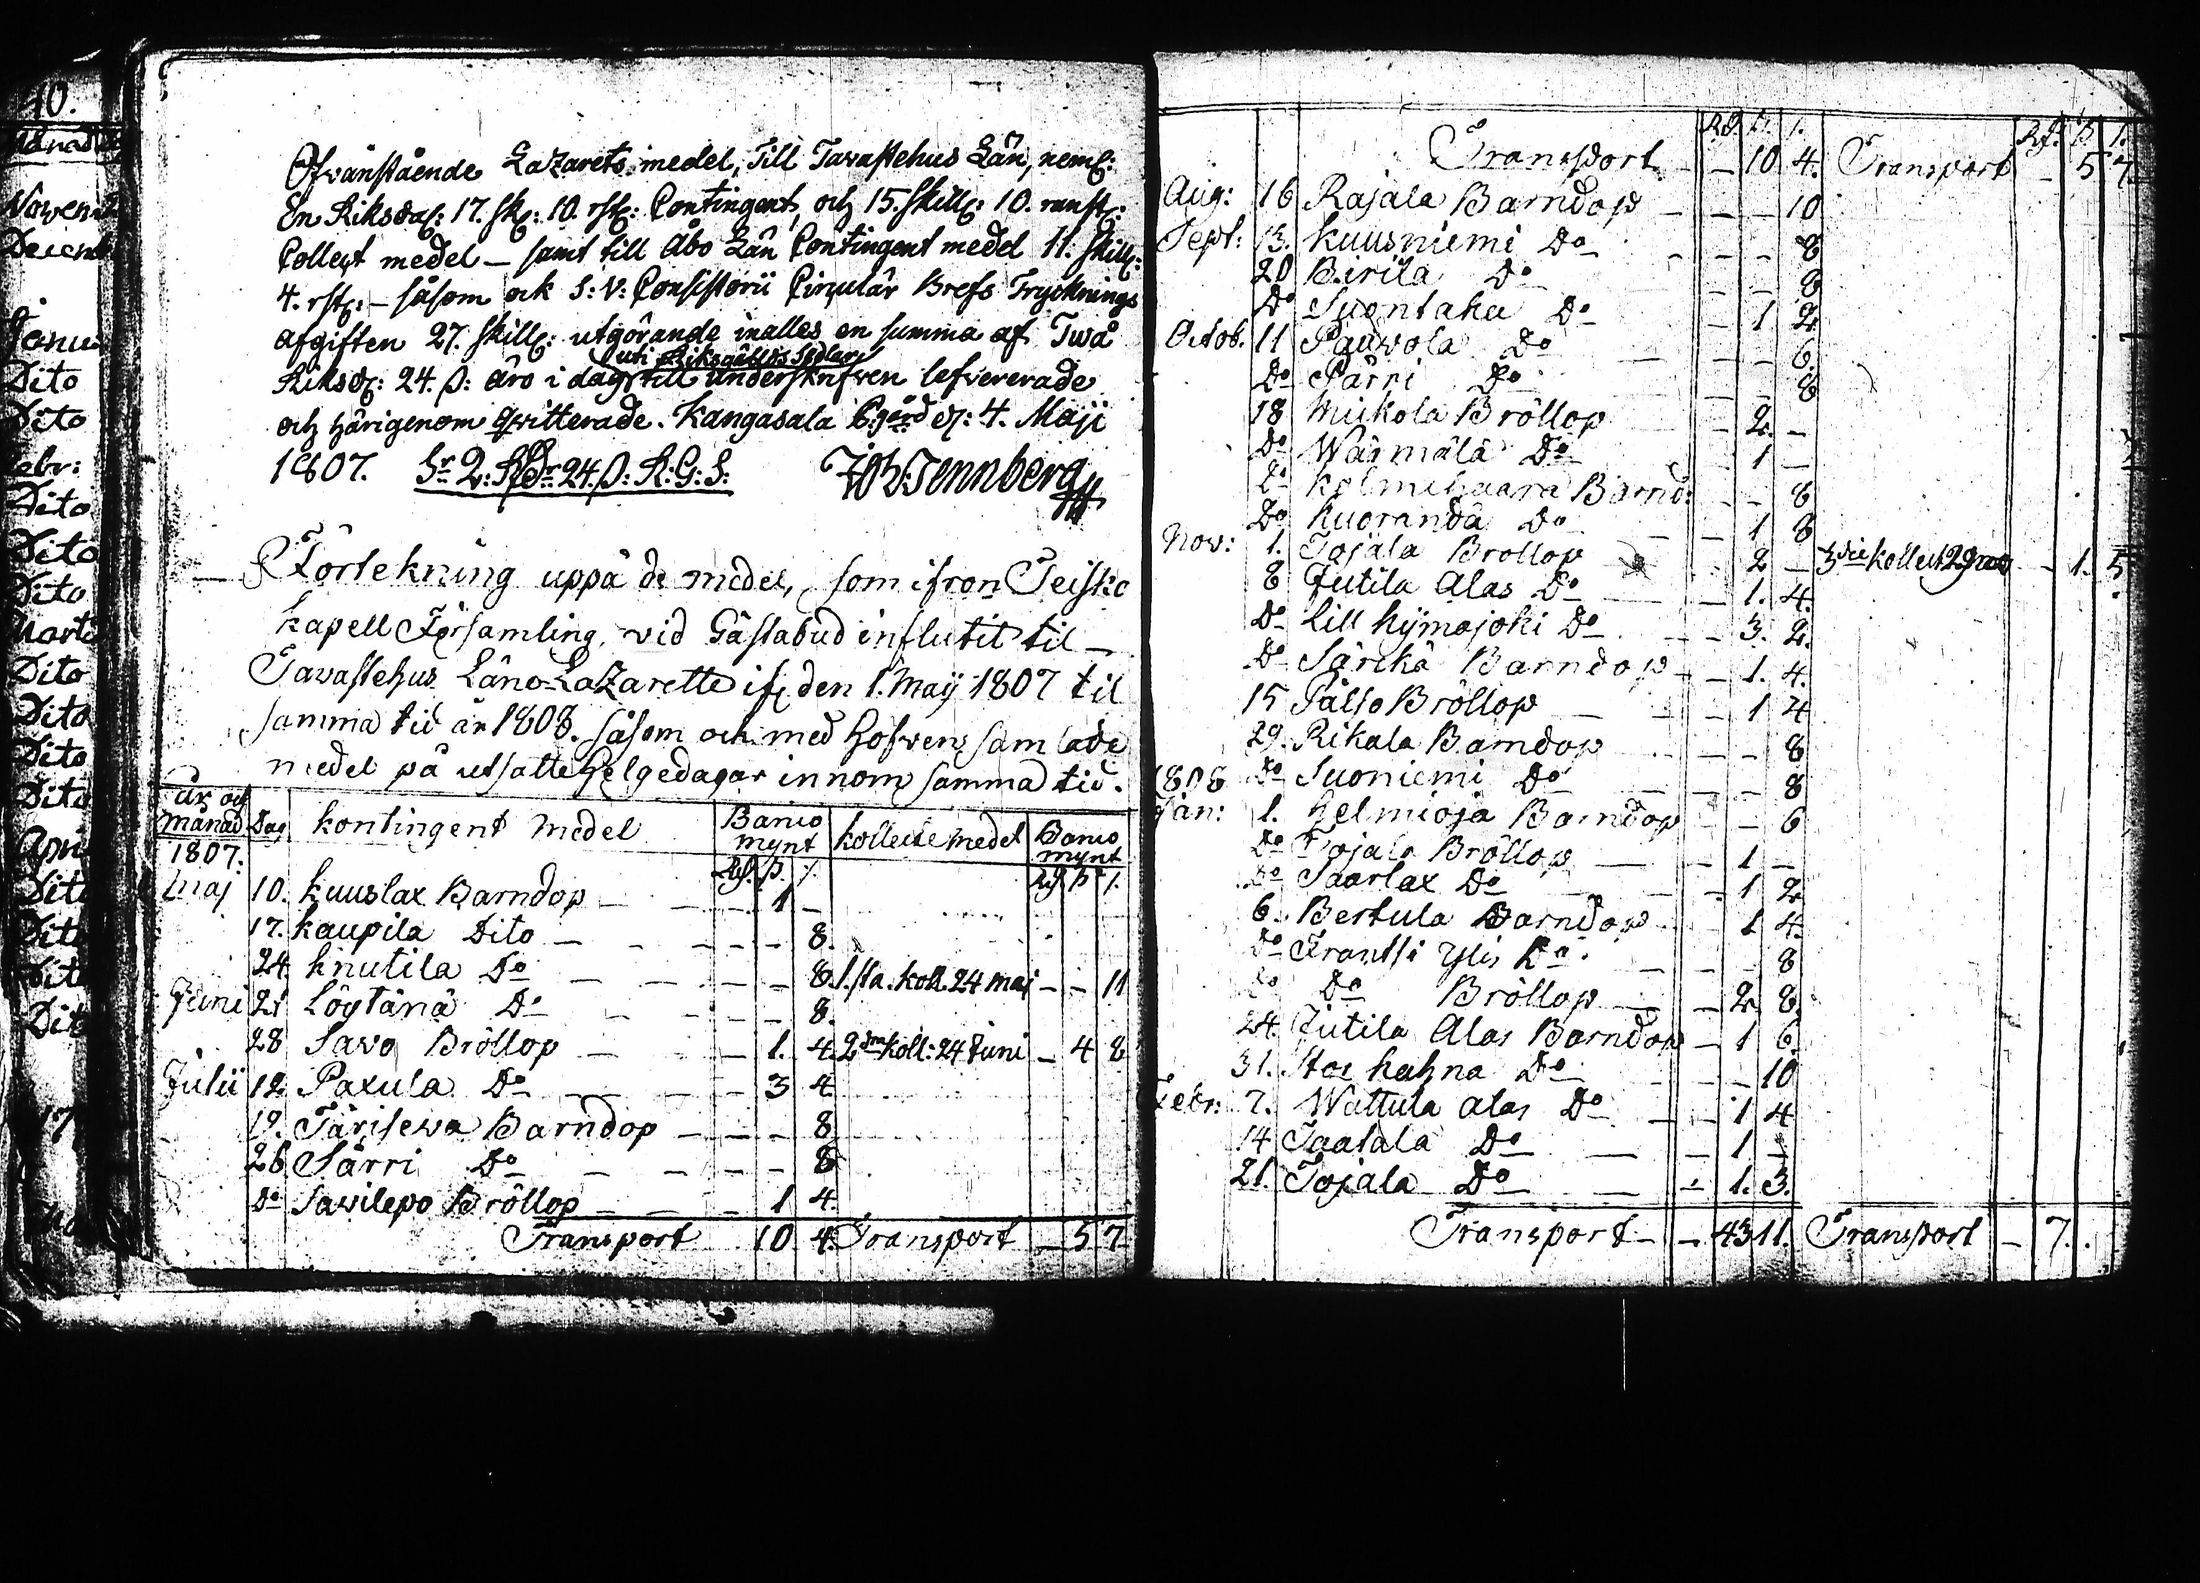 40.
Månad
Novemb
Decemb
Janu
Dito
Dito
Febr:
Dito
Dito
Dito
Marti
Dito
Dito
Dito
Dito
April
Dito
Dito
Dito
Dito
Ofvanstående Lazarets medel, Till Tavastehus Län, neml:
En Riksdal: 17. sk: 10. rst: Contingent, och 15. skill: 10. runst:
Collect medel – samt till Åbo Län Contingent medel 11. skill:
4. rst: – såsom ock S: V: Consistorii Circulär Brefs Trycknings
afgiften 27. skill: utgörande inalles en summa af Twå
uti Riksgälds Sedlar
Riksd: 24. ß: äro i dag till underskrifven lefvererade
och härigenom qvitterade. Kangasala C:gård d: 4. Maji
1807. Sr 2: Rdr 24. ß: R: G: S:
Förtekning uppå de medel, som ifron Teisko
kapell Församling, vid Gästabud influtit til
Tavastehus Läns Lazarette ifr den 1. Maij 1807 til
samma tid år 1808. såsom och med Hofven samlade
medel på utsatte Helgedagar innom samma tid.
år och månad Dag kontingent medel Banco mynt kollecte medel Banco mynt
1807. Rd. ß. r. Rd. ß. r.
Maj 10. Kuuslax Barndop – – 1 –
17. Kaupila Dito – – – – 8.
24. Knutila Do – – – – 8. 1.sta koll. 24 maj – – 11
Juni 21 Löytänä Do – – – – 8.
28 Savo Bröllop – – 1. 4. 2dra koll: 24 Juni – 4 8
Julii 12 Paxula Do – – – 3 4
19. Tärisewa Barndop – – – 8
26 Särri Do – – – – 8
Do Savilepo Bröllop – – – 1 4.
Transport 10 4. Transport – 5 7
Rd. ß. r. Rd. ß. r.
Transport – 10 4. Transport – 5 7
Aug: 16 Rajala Barndop – – – 10
Sept: 13. Kuusniemi Do – – – 8
20 Birila Do – – 8
Do Suontaka Do – 1 2
Octob. 11 Pauvola Do – – – 6.
Do Särri Do – – 8
18 Mickola Bröllop – 2. –
Do Wärmälä Do – 1 –
Do Kolmihaara Barnd: – – 8
Do Kuoranda Do – 1 8
Nov: 1. Tojala Bröllop – 2 – 3die kollect 29 nov – 1. 5
8 Jutila Alas Do – 1. 4.
Do Lill Kymajoki Do – 3. 2.
Do Särckä Barndop – 1. 4.
15 Pälso Bröllop – – 1 4
29. Rikala Barndop – – – 8
1808 Do Suoniemi Do – – – 8
Jan: 1. Helmioja Barndop – – 6
Do Tojala Bröllop – – 1 –
Do Saarlax Do – 1 2
6. Bertula Barndop – 1 4.
Do Frantsi Ylis Do – – – 8
Do Do Bröllop – 2 8.
24 Jutila Alas Barndop – 1 6
31. Stor Kahna Do – – – 10
Febr: 7. Wattula Alas Do – – 1 4
14 Taatala Do – – 1 –
21. Tojala Do – – 1. 3.
Transport – – 43 11. Transport – 7.